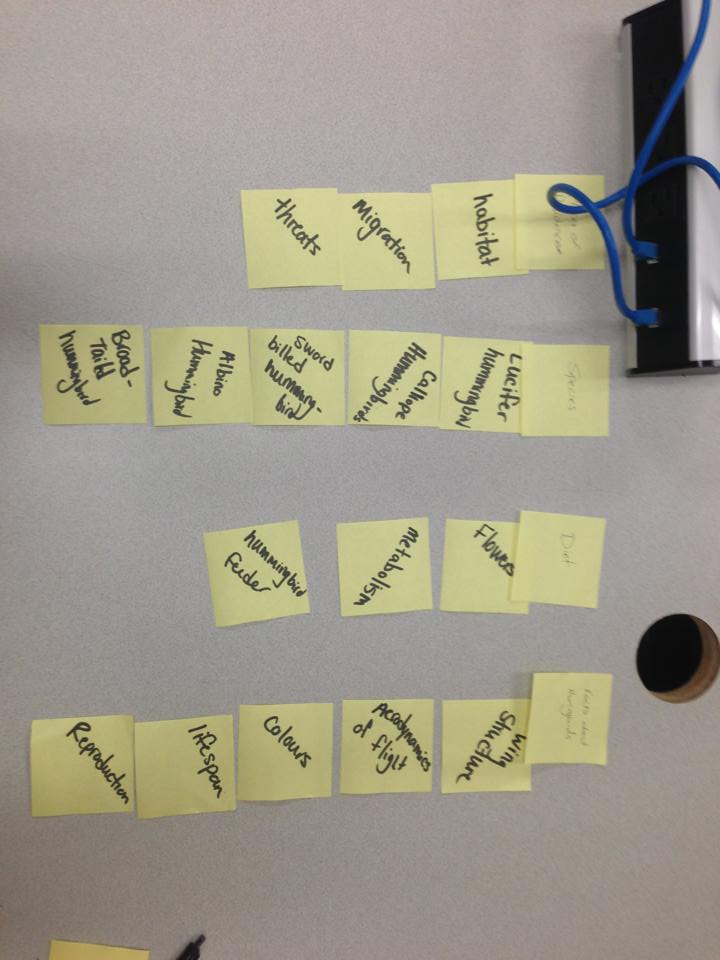 of
habitat
Migration
threats
Species
Lucifer
hummingbird
Calliope
Hummingbirds
Sword
billed
humming-
bird
Albino
Hummingbird
Broad-
Taild
hummingbird
Diet
Flowers
metabolism
hummingbird
feeder
Facts about
Wing
Structure
Aerodynamics
of flight
Colours
lifespan
Reproduction